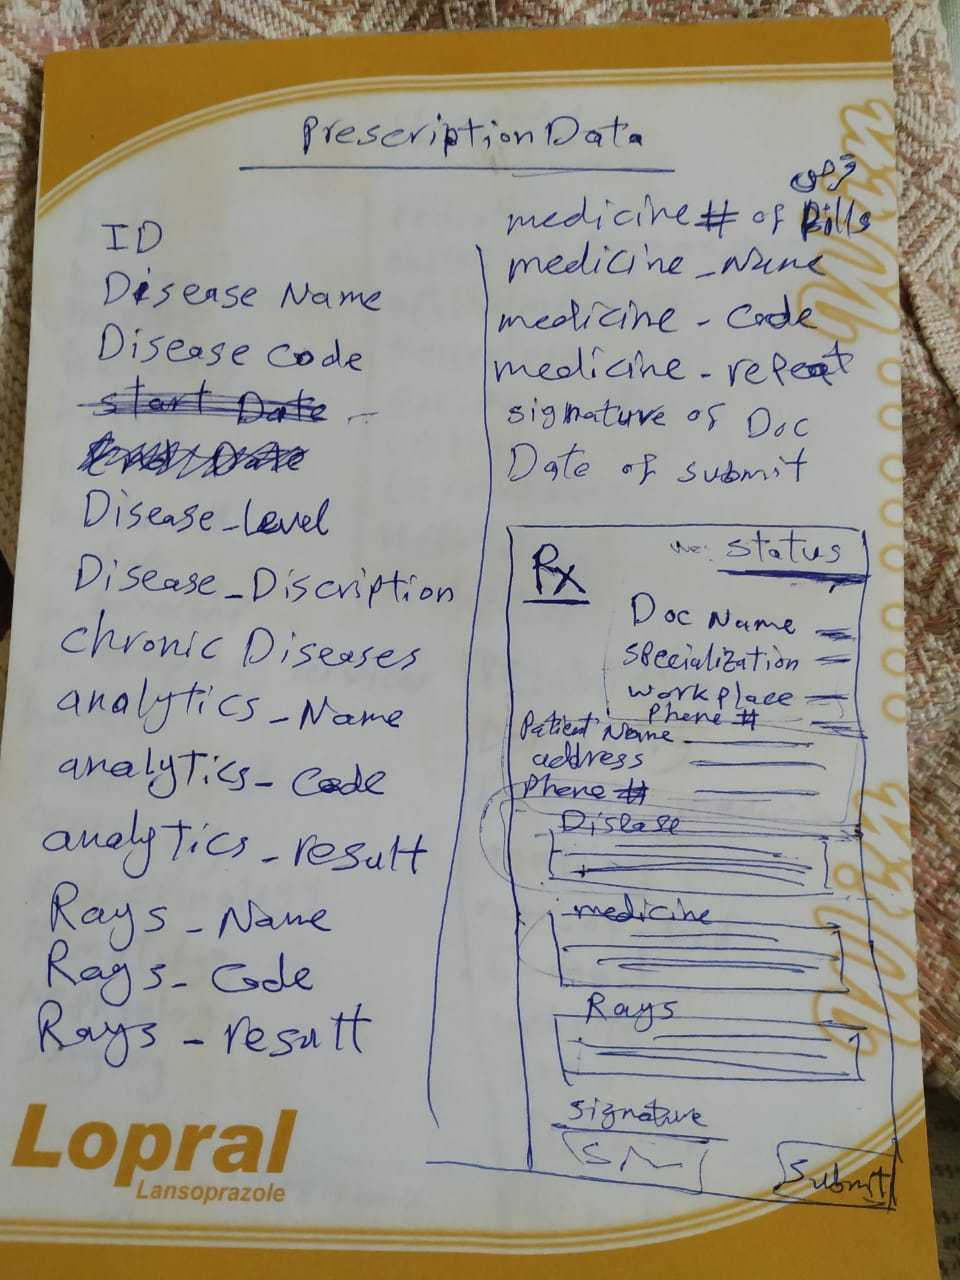 PrescriptionData
ID
Disease Name
Disease Code
Start Date
End Date
Disease_Level
Disease_Discription
chronic Diseases
analytics_Name
analytics_Code
analytics_result
Rays_Name
Rays_Code
Rays_result
medicine # of Pills
medicine_Name
medicine_Code
medicine_repeat
signature of Doc
Date of submit
Rx
status
Doc Name
specialization
workplace
Phone #
Patient Name
address
Phone #
Disease
medicine
Rays
signature
Submit
Lopral
Lansoprazole